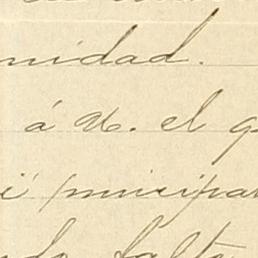 nidad.
á U. el q
i principa
do falta